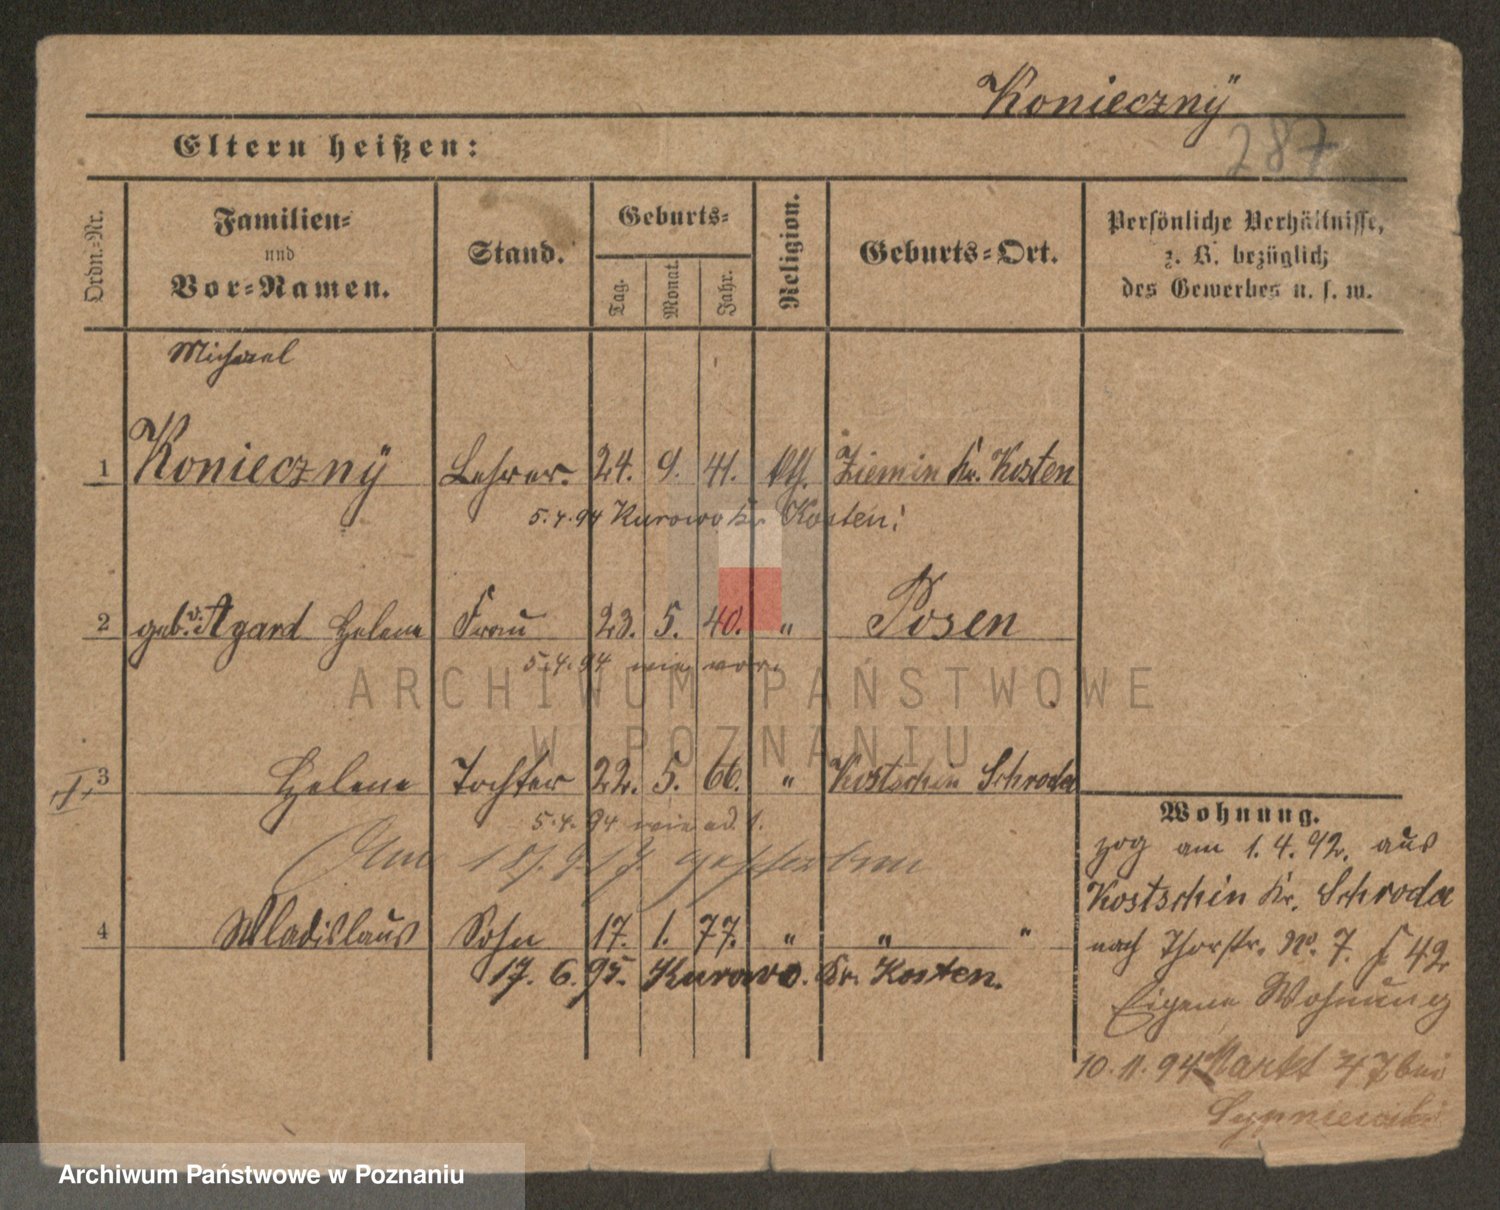 Konieczny
287
Eltern heißen:
Ordn.-Nr.
Familien-
und
Vor-Namen.
Stand.
Geburts-
Tag.
Monat.
Jahr.
Religion.
Geburts-Ort.
Persönliche Verhältnisse,
z. B. bezüglich
des Gewerbes u. s. w.
Michael
1 Konieczny Lehrer. 24. 9. 41. kth. Ziemin Kr. Kosten
5.4.94 Kurowo Kr. Kosten!
2 geb. Agard Helene Frau 23. 5. 40. " Posen
5.4.94 wie vor.
ARCHIWUM PAŃSTWOWE
W POZNANIU
3 Helene Tochter 22. 5. 66. " Kostschin Schroda
5.4.94 wie ad. 1.
Am gestorben
4 Wladislaus Sohn 17. 1. 77. " " "
17. 6. 95. Kurowo. Kr. Kosten.
Wohnung.
zog am 1. 4. 92. aus
Kostschin Kr. Schroda
nach Thorstr. No. 7. 42
Eigene Wohnung
10. 11. 94 Markt 47 bei
Sypniewski
Archiwum Państwowe w Poznaniu